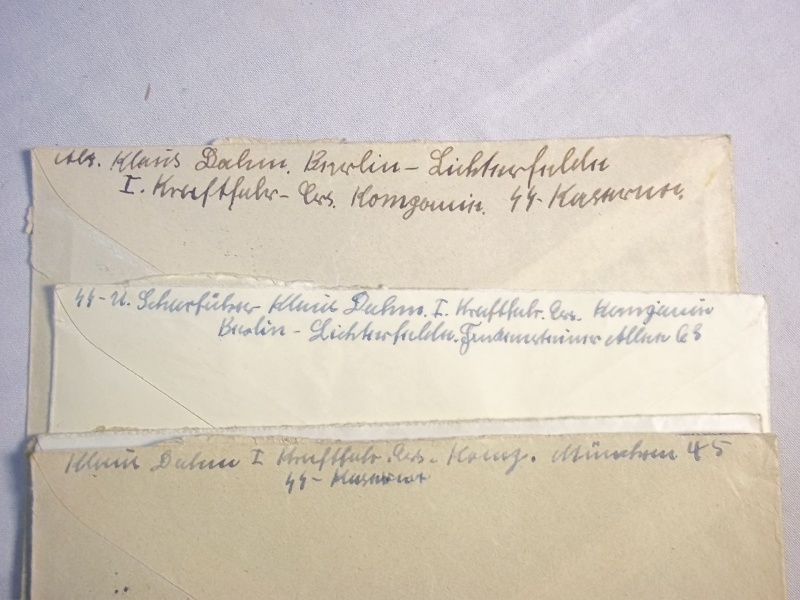 Abs. Klaus Dahm. Berlin - Lichterfelde
I. Kraftfahr - Ers. Kompanie. SS - Kaserne.
SS - U. Scharführer Klaus Dahm. I. Kraftfahr. Ers. Kompanie
Berlin - Lichterfelde. Finckensteiner Allee 63
Klaus Dahm I Kraftfahr. Ers. Komp. München 45
SS - Kaserne